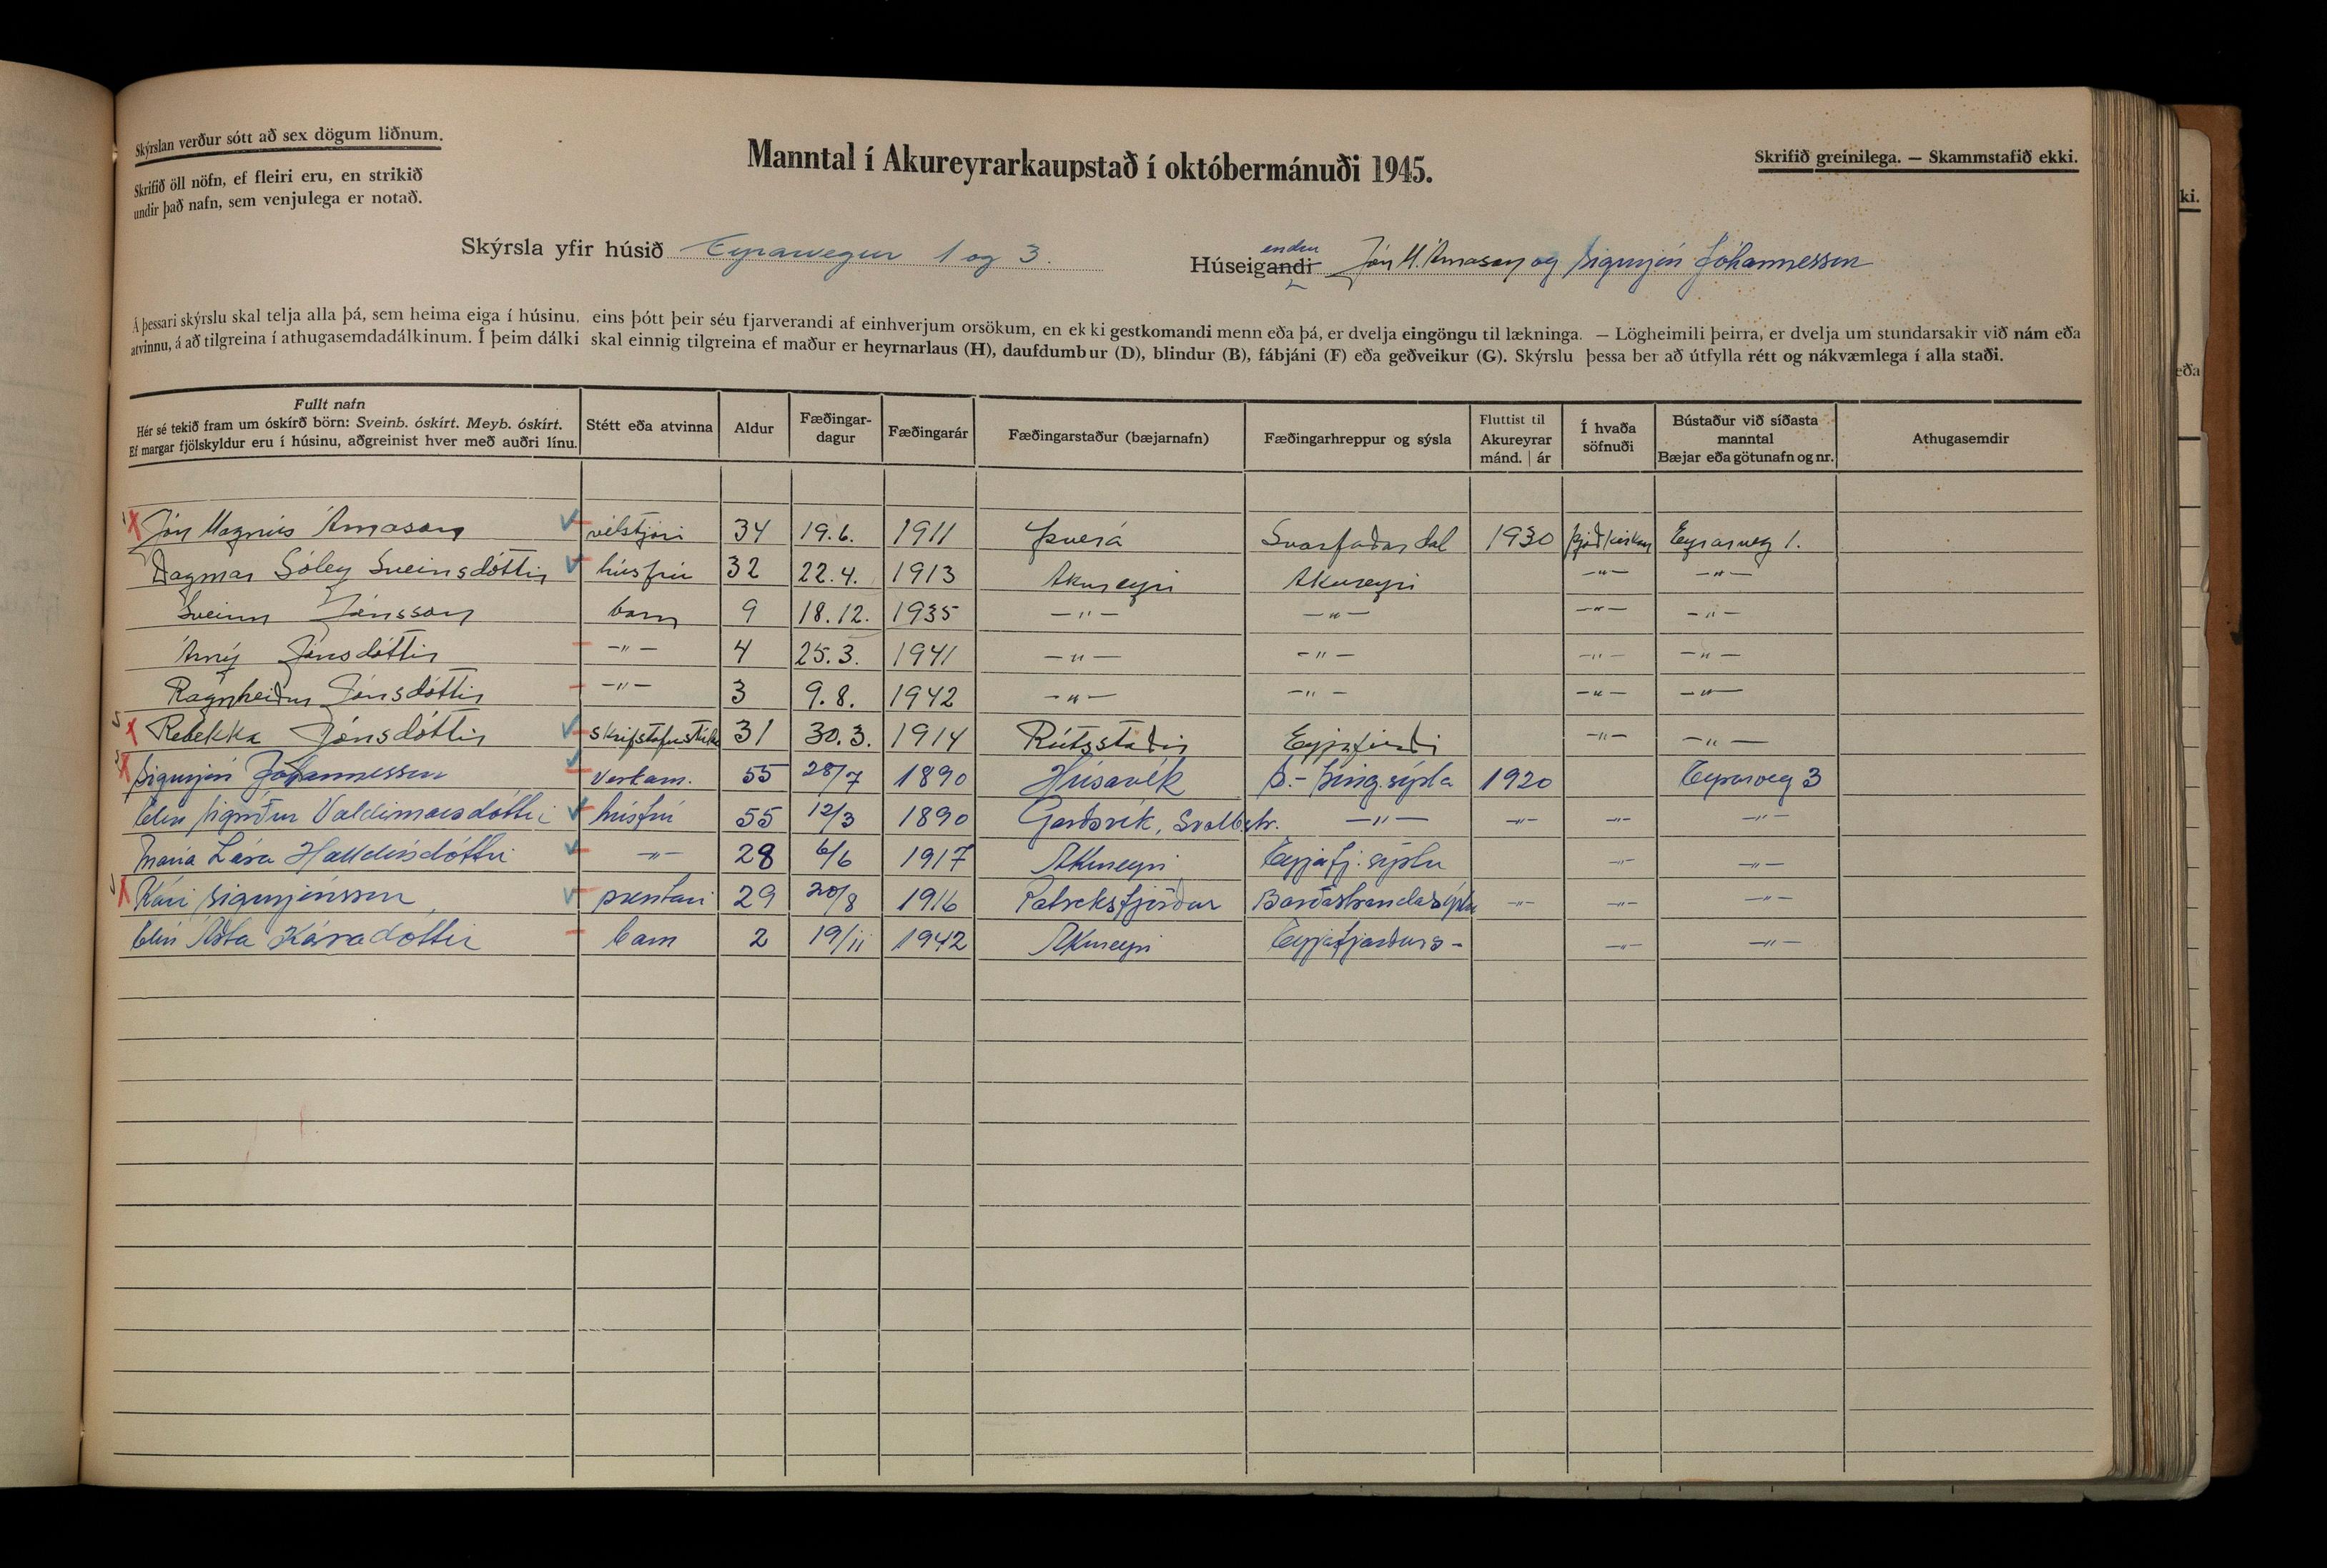 Skýrslan verður sótt að sex dögum liðnum.
Skrifið öll nöfn, ef fleiri eru, en strikið
undir það nafn, sem venjulega er notað.
Manntal í Akureyrarkaupstað í októbermánuði 1945.
Skrifið greinilega. — Skammstafið ekki.
Skýrsla yfir húsið Eyrarvegur 1 og 3.
endur
Húseigandi Jón M. Árnason og Sigurjón Jóhannesson
Á þessari skýrslu skal telja alla þá, sem heima eiga í húsinu, eins þótt þeir séu fjarverandi af einhverjum orsökum, en ekki gestkomandi menn eða þá, er dvelja eingöngu til lækninga. — Lögheimili þeirra, er dvelja um stundarsakir við nám eða
atvinnu, á að tilgreina í athugasemdadálkinum. Í þeim dálki skal einnig tilgreina ef maður er heyrnarlaus (H), daufdumbur (D), blindur (B), fábjáni (F) eða geðveikur (G). Skýrslu þessa ber að útfylla rétt og nákvæmlega í alla staði.
Fullt nafn
Hér sé tekið fram um óskírð börn: Sveinb. óskírt. Meyb. óskírt.
Ef margar fjölskyldur eru í húsinu, aðgreinist hver með auðri línu.
Stétt eða atvinna
Aldur
Fæðingar-
dagur
Fæðingarár
Fæðingarstaður (bæjarnafn)
Fæðingarhreppur og sýsla
Fluttist til
Akureyrar
mánd. | ár
Í hvaða
söfnuði
Bústaður við síðasta
manntal
Bæjar eða götunafn og nr.
Athugasemdir
Jón Magnús Árnason vélstjóri 34 19.6. 1911 Þverá Svarfaðardal 1930 þjóðkirkju Eyrarveg 1.
Dagmar Sóley Sveinsdóttir húsfrú 32 22.4. 1913 Akureyri Akureyri —"— —"—
Sveinn Jónsson barn 9 18.12. 1935 —"— —"— —"— —"—
Árný Jónsdóttir —"— 4 25.3. 1941 —"— —"— —"— —"—
Ragnheiður Jónsdóttir —"— 3 9.8. 1942 —"— —"— —"— —"—
Rebekka Jónsdóttir skrifstofustúlka 31 30.3. 1914 Rútsstaðir Eyjafirði —"— —"—
Sigurjón Jóhannesson Verkam. 55 28/7 1890 Húsavík S.-Þing.sýsla 1920 Eyrarveg 3
Elín Sigríður Valdimarsdóttir húsfrú 55 12/3 1890 Garðsvík, Svalbstr. —"— —"— —"— —"—
María Lára Halldórsdóttir —"— 28 6/6 1917 Akureyri Eyjafj. sýslu —"— —"—
Kári Sigurjónsson prentari 29 20/8 1916 Patreksfjörður Barðastrandasýslu —"— —"— —"—
Elín Ásta Káradóttir barn 2 19/11 1942 Akureyri Eyjafjarðars- —"— —"—